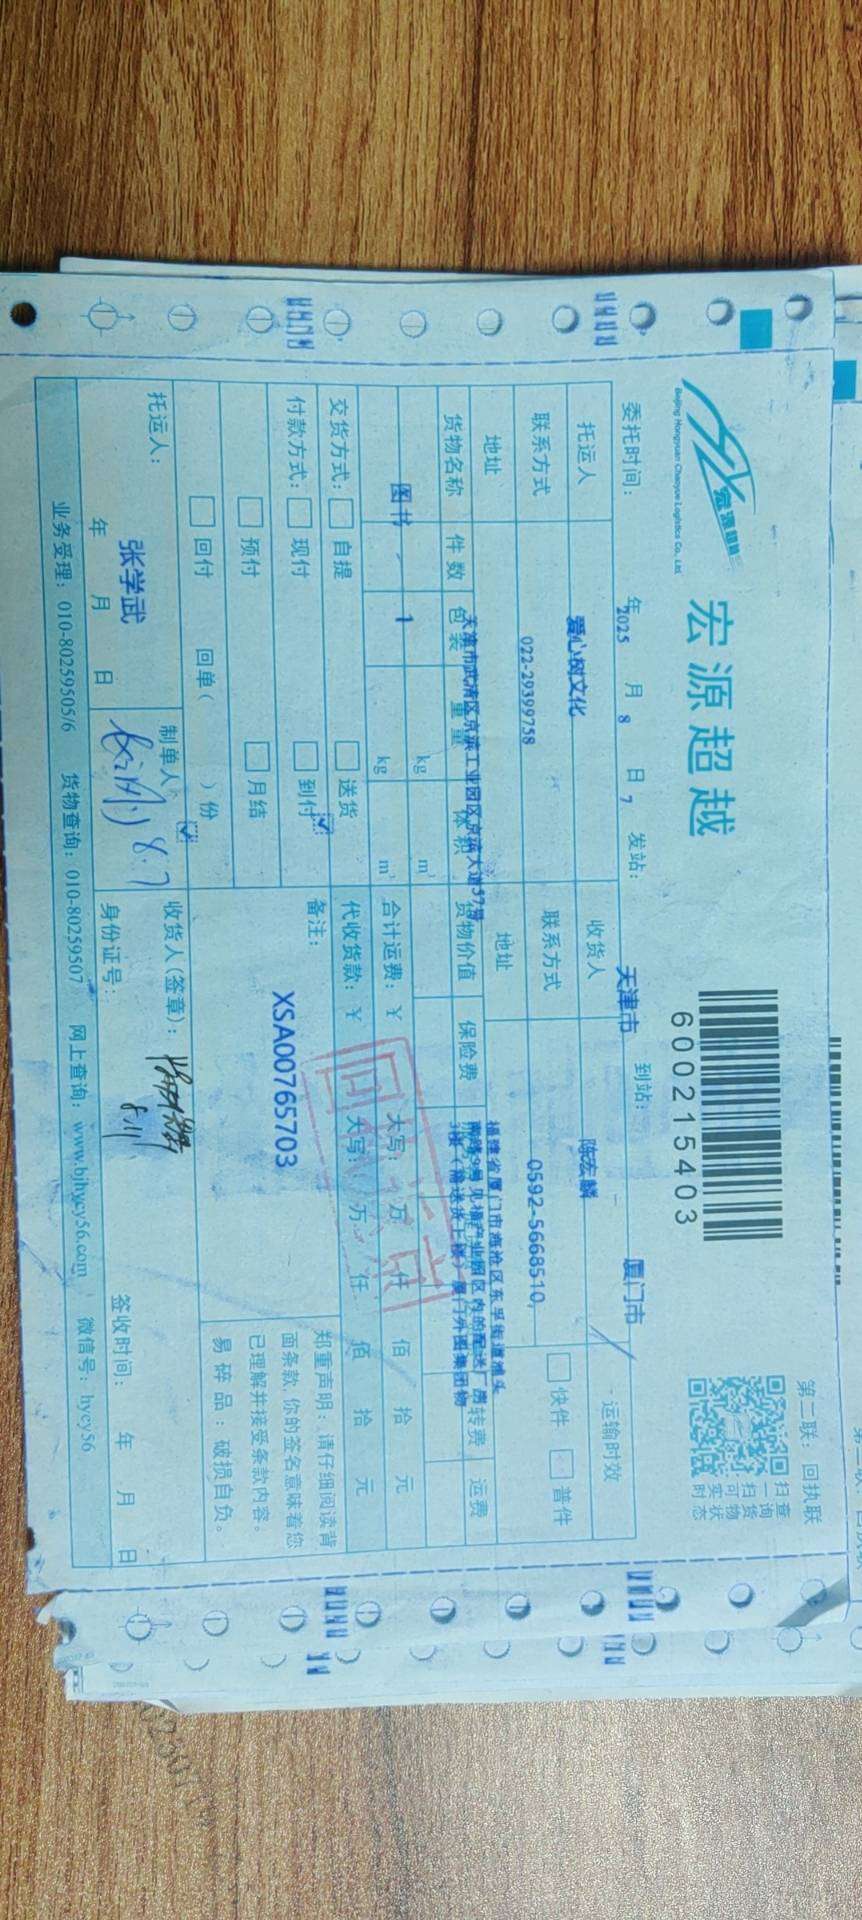 第二联：回执联
宏源超越
Beijing Hongyuan Chaoyue Logistics Co., Ltd.
宏源超越
600215403
扫一扫
查询货物
实时状态
委托时间： 2025 年 8 月 7 日 发站： 天津市 到站： 厦门市
托运人 爱心树文化 收货人 陈宏麟 运输时效
联系方式 022-29399758 联系方式 0592-5668510, 快件 普件
地址 天津市武清区京滨工业园区京滨大道37号 地址 福建省厦门市海沧区东孚街道滩头
货物名称 件数 包装 重量 体积 货物价值 保险费 转费 运费
图书 1 kg m³
kg m³
合计运费：￥ 大写： 万 仟 佰 拾 元
交货方式： 自提 送货 代收货款：￥ 大写： 万 仟 佰 拾 元
付款方式： 现付 到付 备注：
预付 月结
回付 回单( )份
XSA00765703
郑重声明：请仔细阅读背
面条款,你的签名意味着您
已理解并接受条款内容。
易碎品：破损自负。
托运人： 张学武 年 月 日
制单人 8.7
收货人(签章)： 8.11
身份证号： 签收时间： 年 月 日
业务受理：010-80259505/6 货物查询：010-80259507 网上查询：www.bjhycy56.com 微信号：hycy56